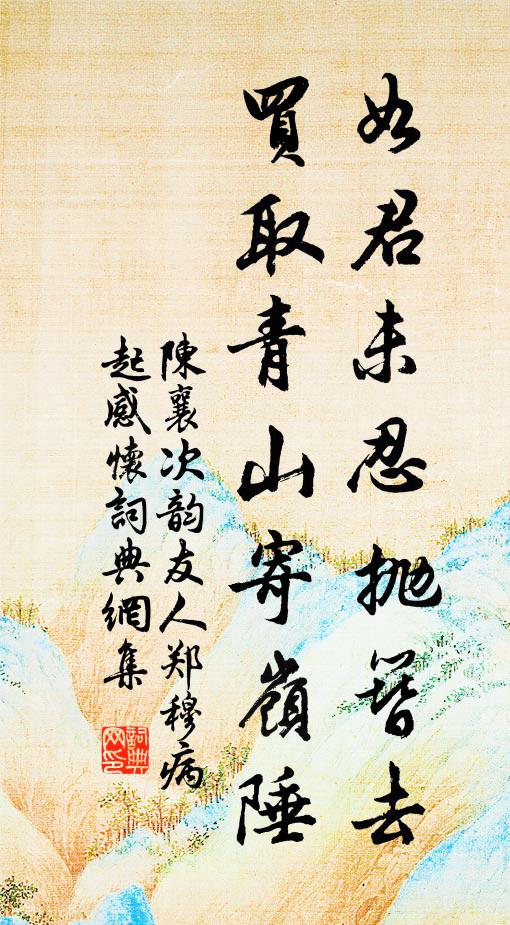 如君未忍抛簪去
買取青山寄嶺陲
陳襄次韵友人郑穆病
起感懷詞典網集
詞典
网印